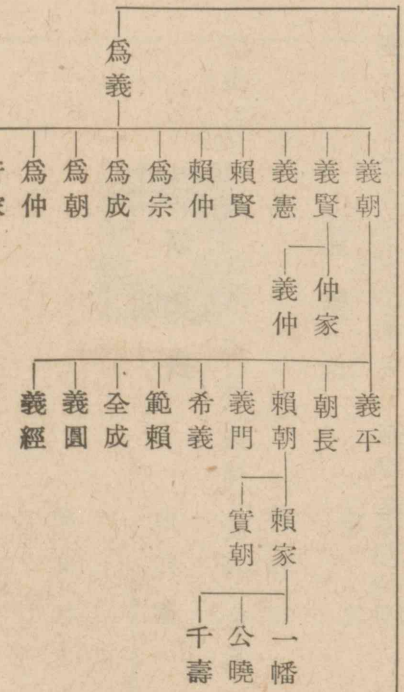 爲義
義朝
義賢
義憲
賴賢
賴仲
爲宗
爲成
爲朝
爲仲
仲家
義仲
義平
朝長
賴朝
義門
希義
範賴
全成
義圓
義經
賴家
實朝
一幡
公曉
千壽